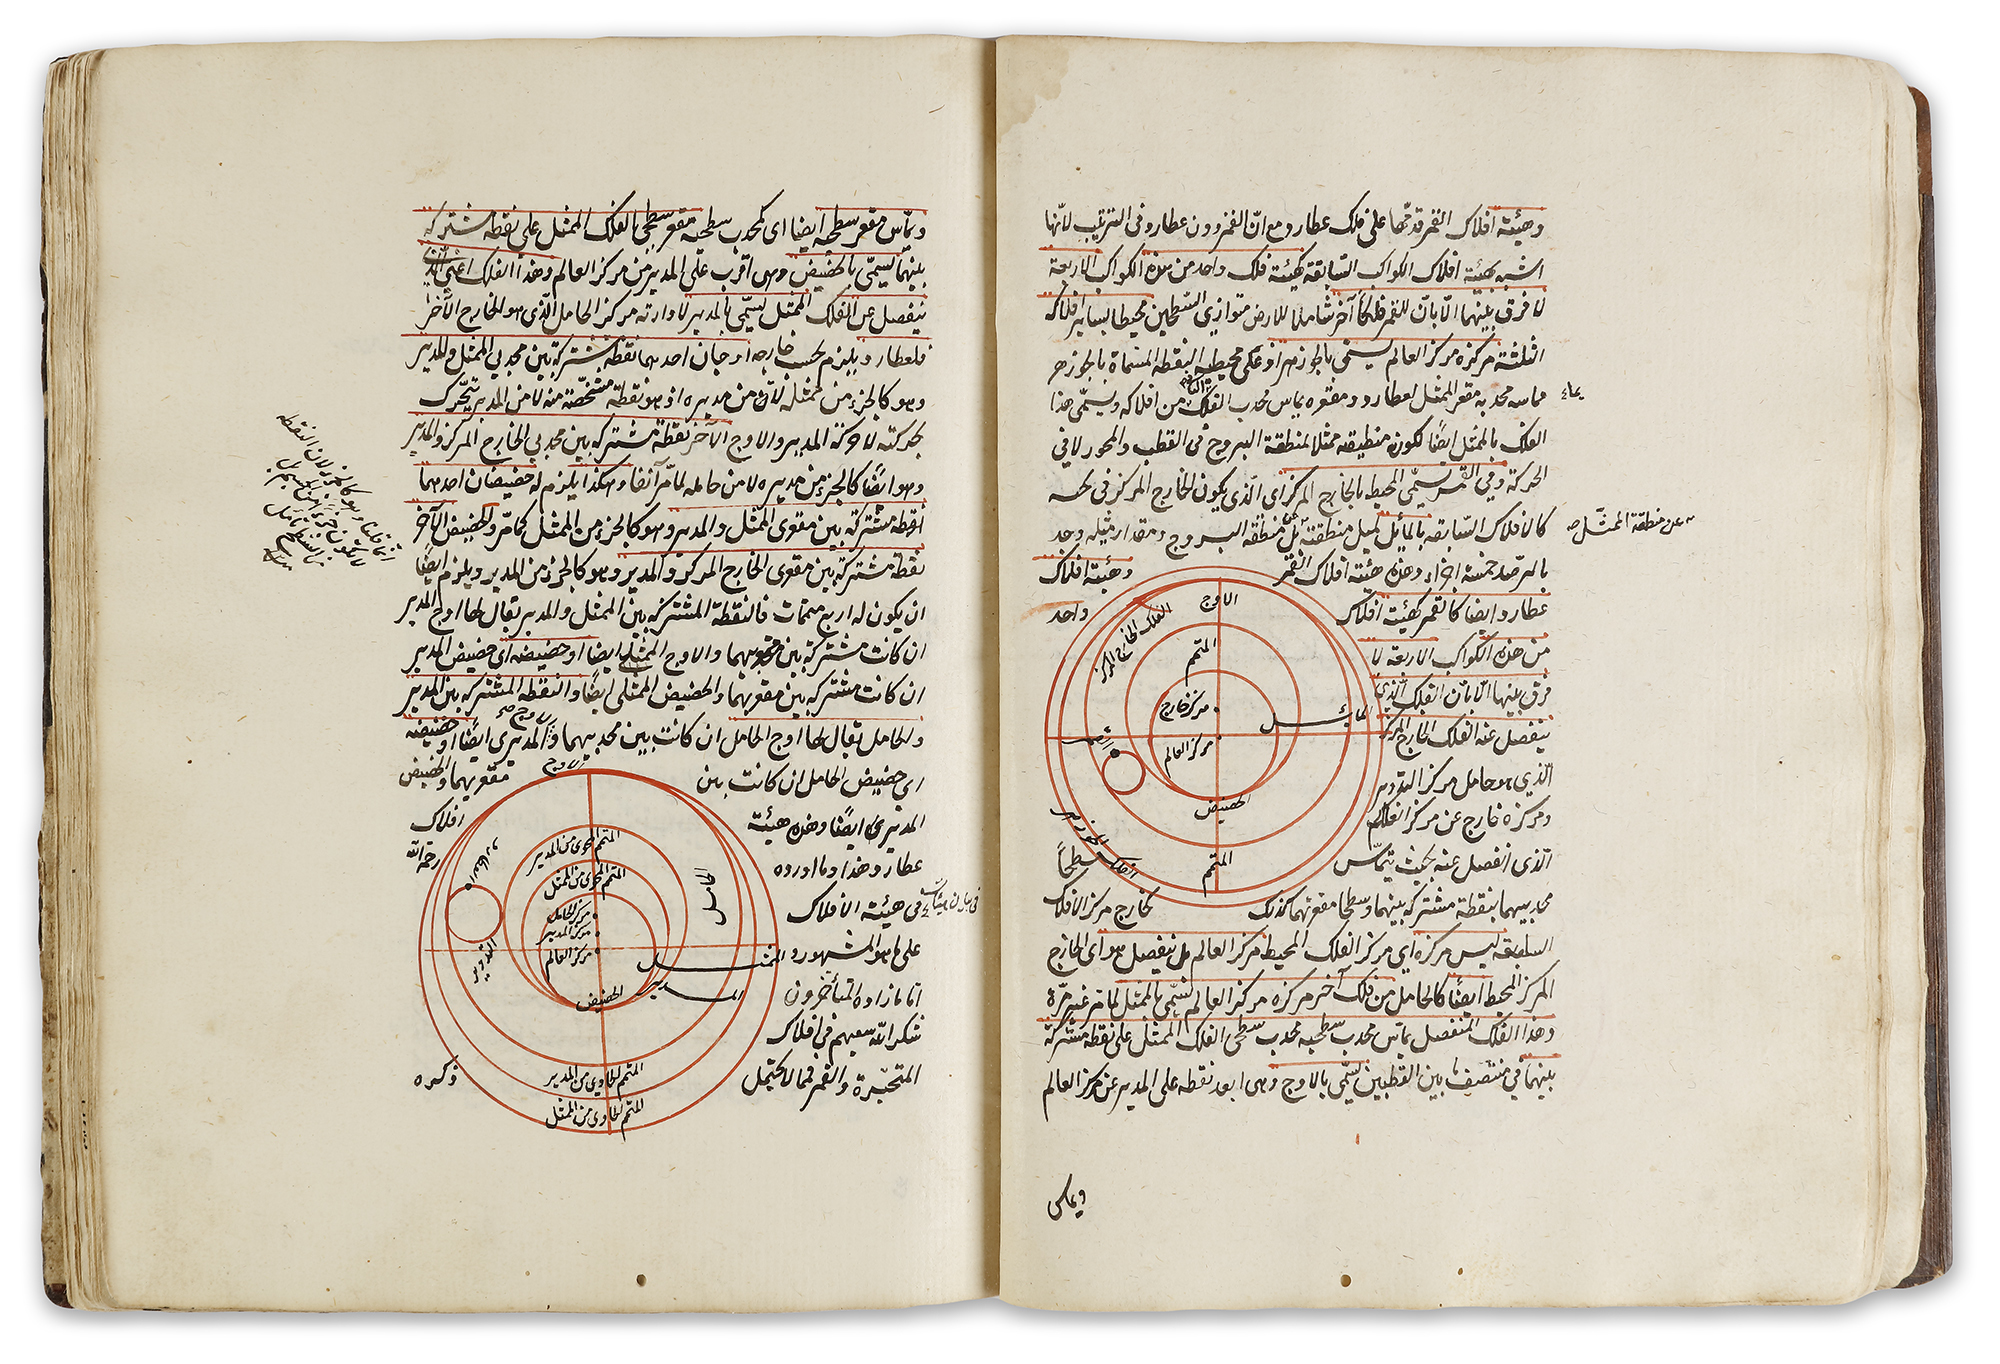 وهيئة افلاك القمر قدّمها على فلك عطارد مع انّ القمر دون عطارد فى الترتيب لانّها
اشبه بهيئة افلاك الكواكب السّابقة كهيئة فلك واحد من هذه الكواكب الاربعة
لا فرق بينهما الّا بانّ للقمر فلكاً آخر شاملا للارض متوازى السّطحين محيطا بساير افلاكه
الثلثة مركزه مركز العالم يسمّى بالجوزهر اذ على محيطه النقطة المسمّاة بالجوزهر
مماس محدبه مقعر الممثل لعطارد ومقعره يماس محدب الفلك من افلاكه ويسمّى هذا
الفلك بالممثل ايضاً لكون منطقته ممثلا لمنطقة البروج فى القطب والمحور لا فى
الحركة وفى القمر يسمّى المحيط بالخارج المركز اى الّذى يكون الخارج المركز فى ثخنه
كالافلاك السّابقه بالمائل لميل منطقته عن منطقة البروج ومقدار ميله وجد
عن منطقة الممثّل صح
بالرصد خمسة اجزاء وهذه هيئة افلاك القمر وهيئة افلاك
عطارد ايضا كالقمر كهيئة افلاك واحد
من هذه الكواكب الاربعة لا
فرق بينها الّا بانّ الفلك الّذى
ينفصل عنه الفلك الخارج المركز
الّذى هو حامل مركز التدوير
ومركزه خارج عن مركز العالم
الّذى انفصل عنه بحيث يتماسّ سطحاً
محدبيهما بنقطة مشتركه بينهما وسطحا مقعريهما كذلك كخارج مركز الافلاك
السابقه ليس مركزه اى مركز الفلك المحيط مركز العالم بل ينفصل هو اى الخارج
المركز المحيط ايضاً كالحامل من فلك آخر مركزه مركز العالم يسمّى بالممثل لما مر غير مرّة
وهذا الفلك المنفصل يماسّ محدب سطحيه محدب سطحى الفلك الممثل على نقطة مشتركة
بينهما فى منتصف ما بين القطبين يسمّى بالاوج وهى ابعد نقطه على المدير عن مركز العالم
ويماس
الاوج
الفلك الخارج المركز
المتمم
مركز خارج
المائل
مركز العالم
الحضيض
المتمم
ويماسّ مقعر سطحيه ايضا اى كمحدب سطحيه مقعر سطحى الفلك الممثل على نقطة مشتركة
بينهما يسمّى بالحضيض وهى اقرب على المدير من مركز العالم وهذا الفلك اعنى الّذى
ينفصل عن الفلك الممثل يسمّى بالمدير لادارته مركز الحامل الّذى هو الخارج الآخر
فلعطارد ويلزم بحسب خارجه اوجان احدهما نقطة مشتركة بين محدبى الممثل والمدير
وهو كالجزء من ممثله لا من مديره اذ هو نقطة مشخّصة منه لا من المدير يتحّرك
بحركته لا حركة المدير والاوج الآخر نقطة مشتركه بين محدبى الخارج المركز والمدير
وهو ايضاً كالجزء من مديره لا من حامله لما مرّ آنفا وهكذا يلزم له حضيضان احدهما
نقطة مشتركة بين مقعرى الممثل والمدير وهو كالجزء من الممثل كما مرّ والحضيض الآخر
نقطة مشتركة بين مقعرى الخارج المركز والمدير وهو كالجزء من المدير ويلزم ايضاً
ان يكون له اربع متممات فالنقطة المشتركة بين الممثل والمدير يقال لها اوج المدير
ان كانت مشتركة بين محدبيهما والاوج الممثلى ايضا او حضيضه اى حضيض المدير
ان كانت مشتركة بين مقعريهما والحضيض الممثلى ايضاً والنقطة المشتركة بين المدير
والحامل يقال لها اوج الحامل ان كانت بين محدبيهما والاوج المديرى ايضاً او حضيضه
اى حضيض الحامل ان كانت بين مقعريهما والحضيض
المديرى ايضا وهذه هيئة افلاك
عطارد وهذا ما اورده رحمه الله
فى هيئة الافلاك
على ما هو المشهور و
اما ما زاده المتأخرون
شكر الله سعيهم فى افلاك
المتحيّرة والقمر فمما لا يحتمل ذكره
الاوج
المتمم المحوى من المدير
المتمم المحوى من الممثل
الحامل
مركز الحامل
مركز المدير
مركز العالم
التدوير
الممثل
المدير
الحضيض
المتمم الحاوى من المدير
المتمم الحاوى من الممثل